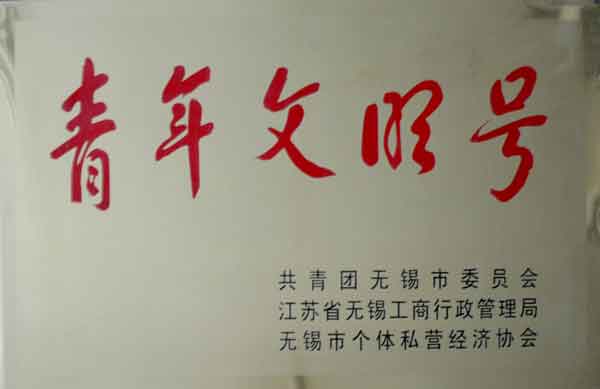 青年文明号
共青团无锡市委员会
江苏省无锡工商行政管理局
无锡市个体私营经济协会